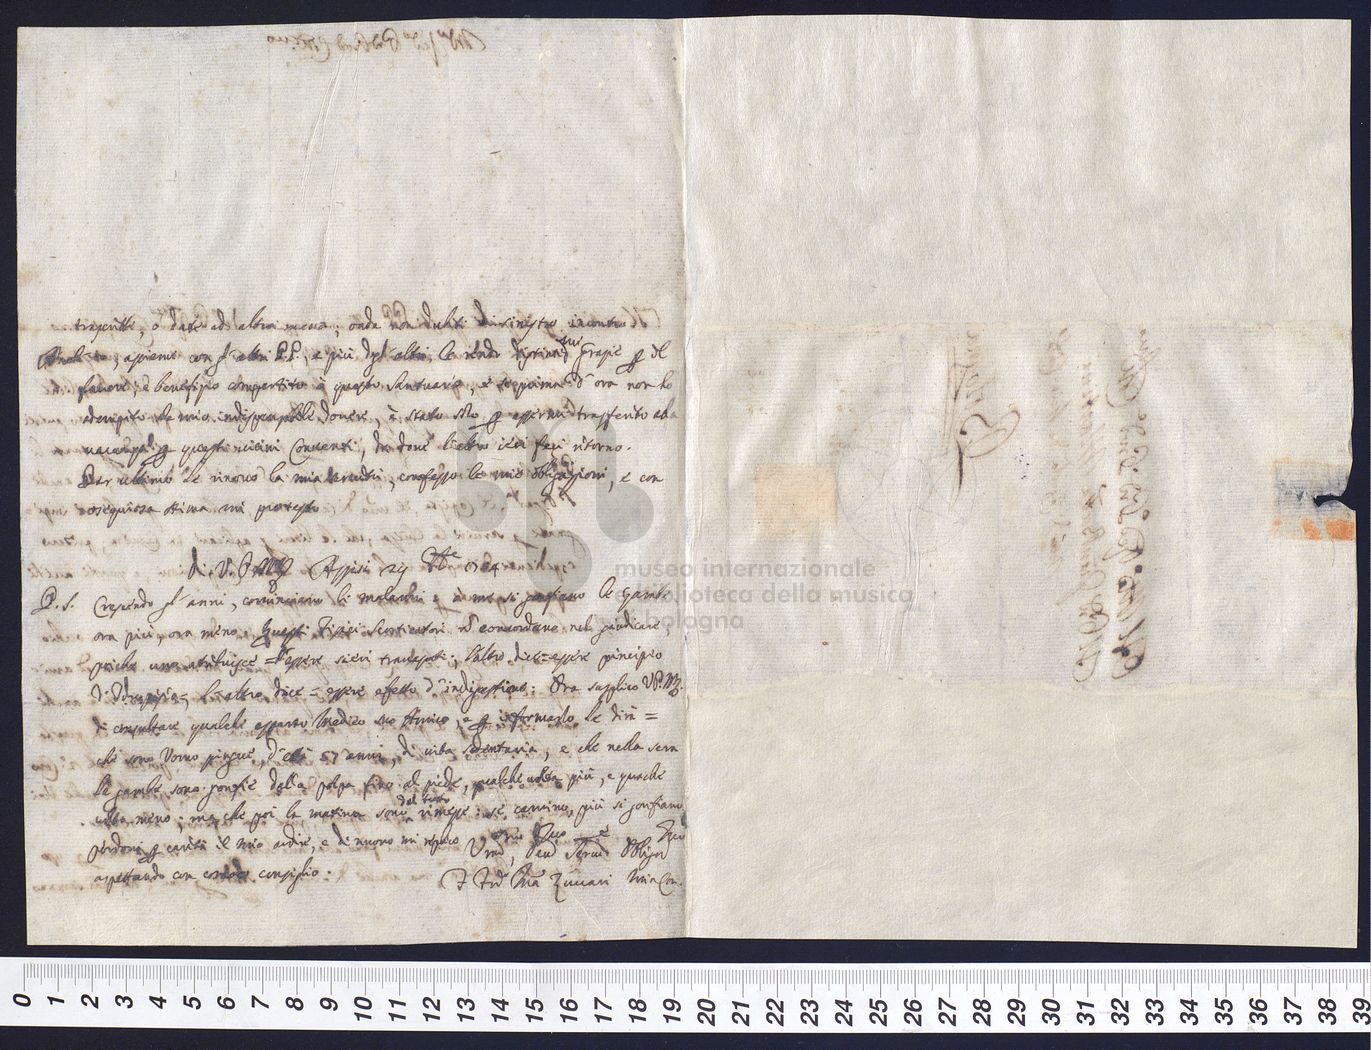 trascritte, o date ad altra mano; onde non dubiti di sinistro incontro
assieme con gl'altri P.P., e più degl'altri, le rendo distintissime grazie per il
favore, e benefizio compartito a questo Santuario, e se prima d'ora non ho
adempito al mio indispensabile dovere, è stato solo per essermi trasferito alla
per questi vicini Conventi, da dove l'altro ieri feci ritorno.
Per ultimo le rinovo la mia servitù, confesso le mie obligazioni, e con
ossequiosa stima mi protesto
di V. P. M. R. Assisi 29 1764
P. S. Crescendo gl'anni, cominciano li malanni e a me si gonfiano le gambe
ora più, ora meno. Questi Fisici non concordano nel giudicare,
poiche uno attribuisce = l'essere sieri travasati; l'altro dice = essere principio
d'Idropisia, l'altro dice = essere effetto d'indigestione: Ora supplico V. P. M. R.
di consultare qualche esperto Medico suo Amico, e per informarlo le dirò =
che sono Uomo pingue d'età 67 anni, di vita sedentaria, e che nella sera
le gambe sono gonfie dalla polpa fino al piede, qualche volta più, e qualche
volta meno; ma che poi la matina sono del tutto rimesse: se camino, più si gonfiano
perdoni per carità il mio ardire, e di nuovo mi
aspettando con comodo consiglio.
Umo, Devo Servo Obligmo
F. Zuccari Min. Con.
museo internazionale
e biblioteca della musica
di bologna
0 1 2 3 4 5 6 7 8 9 10 11 12 13 14 15 16 17 18 19 20 21 22 23 24 25 26 27 28 29 30 31 32 33 34 35 36 37 38 39